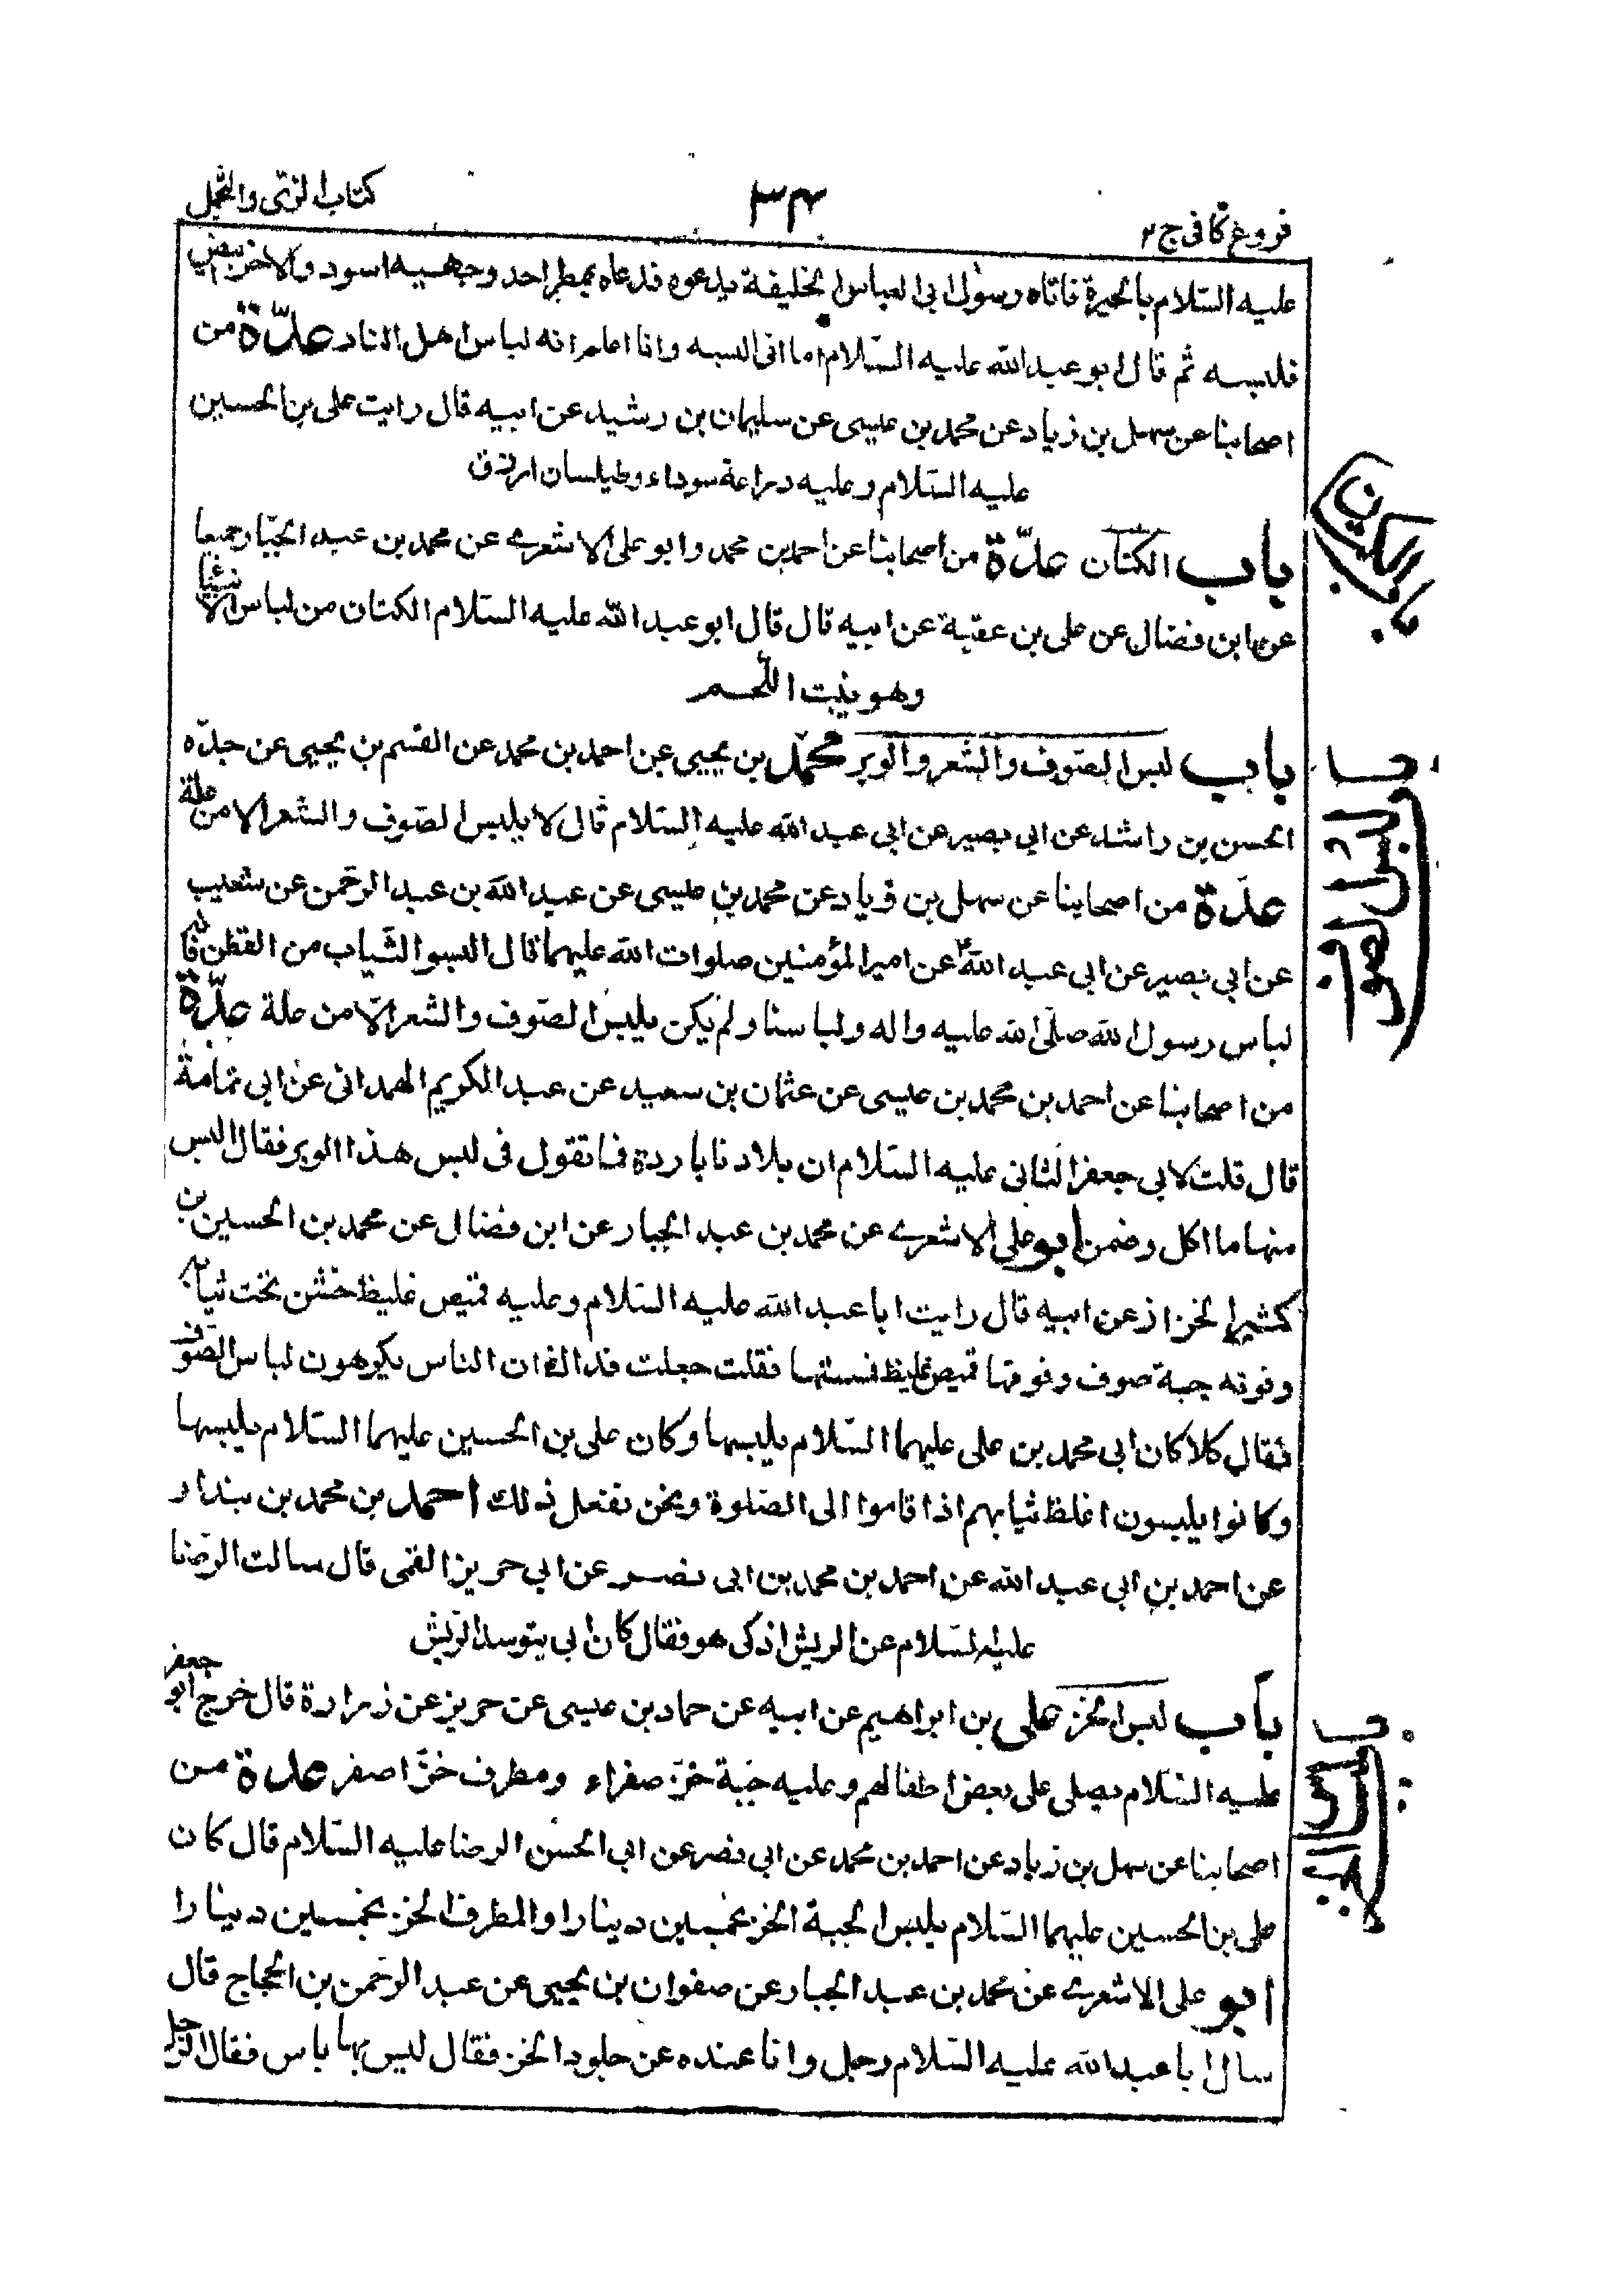 فروع كافى ج ٢
٣٤
كتاب الزى والتجمل
عليه السّلام بالحيرة فاتاه رسول ابى العباس الخليفة يدعوه فدعاه بممطر احد وجهيه اسود والاخر ابيض
فلبسه ثم قال ابو عبد الله عليه السّلام اما انى البسه وانا اعلم انه لباس اهل النار عدّة من
اصحابنا عن سهل بن زياد عن محمد بن عيسى عن سليمان بن رشيد عن ابيه قال رايت على بن الحسين
عليه السّلام وعليه دراعة سوداء وطيلسان ازرق
باب الكتان عدّة من اصحابنا عن احمد بن محمد وابو على الاشعرى عن محمد بن عبد الجبّار جميعا
عن ابن فضال عن على بن عقبة عن ابيه قال قال ابو عبد الله عليه السّلام الكتان من لباس الانبيا
وهو ينبت اللّحم
باب لبس الصّوف والشعر والوبر محمّد بن يحيى عن احمد بن محمد عن القسم بن يحيى عن جدّه
الحسن بن راشد عن ابى بصير عن ابى عبد الله عليه السّلام قال لا يلبس الصّوف والشعر الا من علة
عدّة من اصحابنا عن سهل بن زياد عن محمد بن عيسى عن عبد الله بن عبد الرحمن عن شعيب
عن ابى بصير عن ابى عبد الله ع عن امير المؤمنين صلوات الله عليهما قال البسوا الثّياب من القطن فانه
لباس رسول الله صلّى الله عليه واله ولباسنا ولم يكن يلبس الصّوف والشعر الّا من علة عدّة
من اصحابنا عن احمد بن محمد بن عيسى عن عثمان بن سعيد عن عبد الكريم الهمدانى عن ابى تمامة
قال قلت لابى جعفر الثانى عليه السّلام ان بلادنا باردة فما تقول فى لبس هذا الوبر فقال البس
منها ما اكل وضمن ابو على الاشعرى عن محمد بن عبد الجبار عن ابن فضال عن محمد بن الحسين بن
كثير الخزاز عن ابيه قال رايت ابا عبد الله عليه السّلام وعليه قميص غليظ خشن تحت ثيابه
وفوقه جبة صوف وفوقها قميص غليظ فمسستها فقلت جعلت فداك ان الناس يكرهون لباس الصّوف
فقال كلا كان ابى محمد بن على عليهما السّلام يلبسها وكان على بن الحسين عليهما السّلام يلبسها
وكانوا يلبسون اغلظ ثيابهم اذا قاموا الى الصّلوة ونحن نفعل ذلك احمد بن محمد بن بندار
عن احمد بن ابى عبد الله عن احمد بن محمد بن ابى نصر عن ابى حريز القمى قال سالت الرضا
عليه السّلام عن الريش اذكى هو فقال كان ابى يتوسد الريش
باب لبس الخز على بن ابراهيم عن ابيه عن حماد بن عيسى عن حريز عن زرارة قال خرج ابو جعفر
عليه السّلام يصلى على بعض اطفالهم وعليه جبة خز صفراء ومطرف خزّ اصفر عدة من
اصحابنا عن سهل بن زياد عن احمد بن محمد عن ابى نصر عن ابى الحسن الرضا عليه السّلام قال كان
على بن الحسين عليهما السّلام يلبس الجبة الخز بخمسين دينارا والمطرف الخز بخمسين دينارا
ابو على الاشعرى عن محمد بن عبد الجبار عن صفوان بن يحيى عن عبد الرحمن بن الحجاج قال
سال ابا عبد الله عليه السّلام رجل وانا عنده عن جلود الخز فقال ليس بها باس فقال الرجل
باب الكتان
باب لبس الصوف